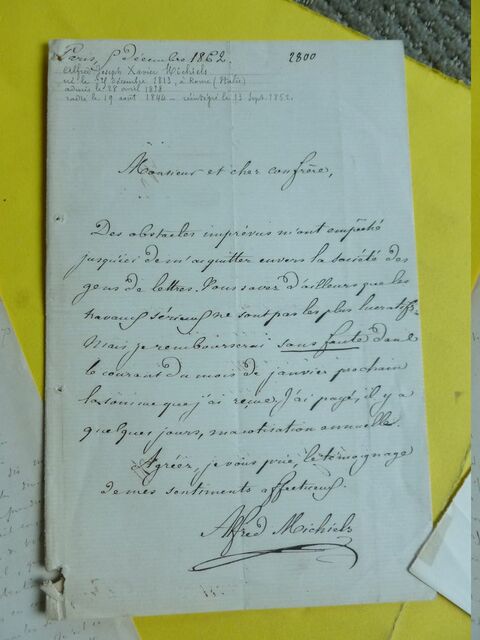 Paris, 5 Décembre 1862.
2800
Alfred Joseph Xavier Michiels
né le 25 décembre 1813, à Rome (Italie)
admis le 28 avril 1838
radié le 19 août 1844 - réintégré le 13 Sept. 1852.
Monsieur et cher confrère,
Des obstacles imprévus m'ont empêché
jusqu'ici de m'acquitter envers la société des
gens de lettres. Vous savez d'ailleurs que les
travaux sérieux ne sont pas les plus lucratifs.
Mais je rembourserai sans faute dans
le courant du mois de janvier prochain
la somme que j'ai reçue. J'ai payé, il y a
quelques jours, ma cotisation annuelle.
Agréez, je vous prie, le témoignage
de mes sentiments affectueux.
Alfred Michiels